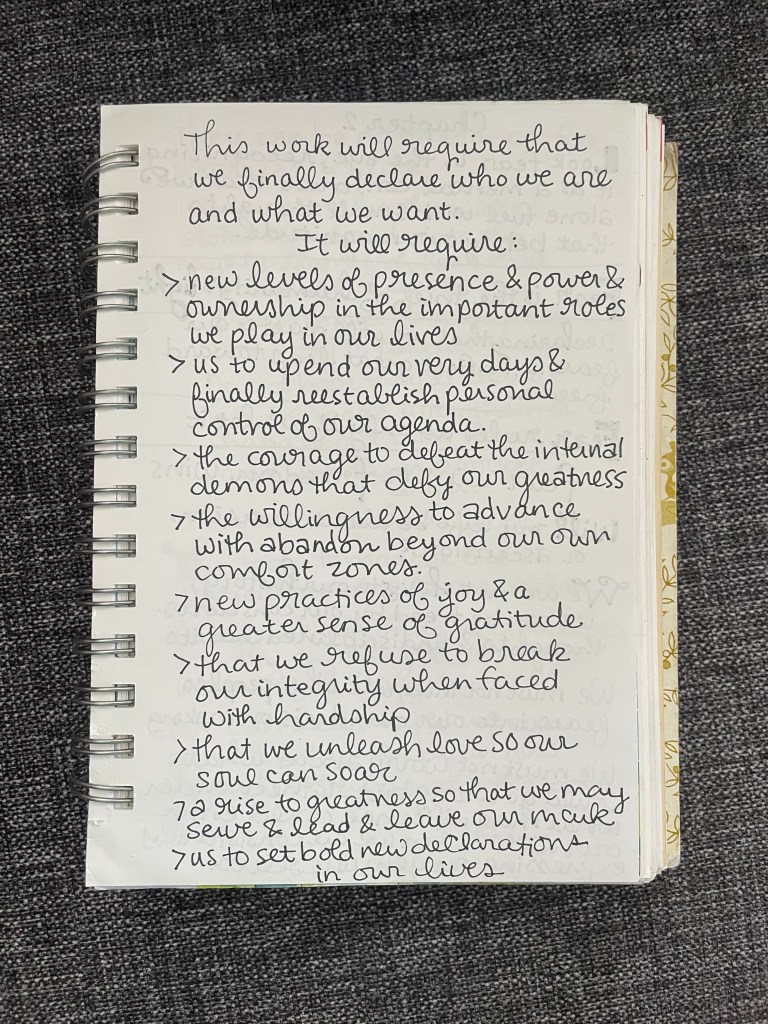 This work will require that
we finally declare who we are
and what we want.
It will require:
> new levels of presence & power &
ownership in the important roles
we play in our lives
> us to upend our very days &
finally reestablish personal
control of our agenda.
> the courage to defeat the internal
demons that defy our greatness
> the willingness to advance
with abandon beyond our own
comfort zones.
> new practices of joy & a
greater sense of gratitude
> that we refuse to break
our integrity when faced
with hardship
> that we unleash love so our
soul can soar
> a rise to greatness so that we may
serve & lead & leave our mark
> us to set bold new declarations
in our lives